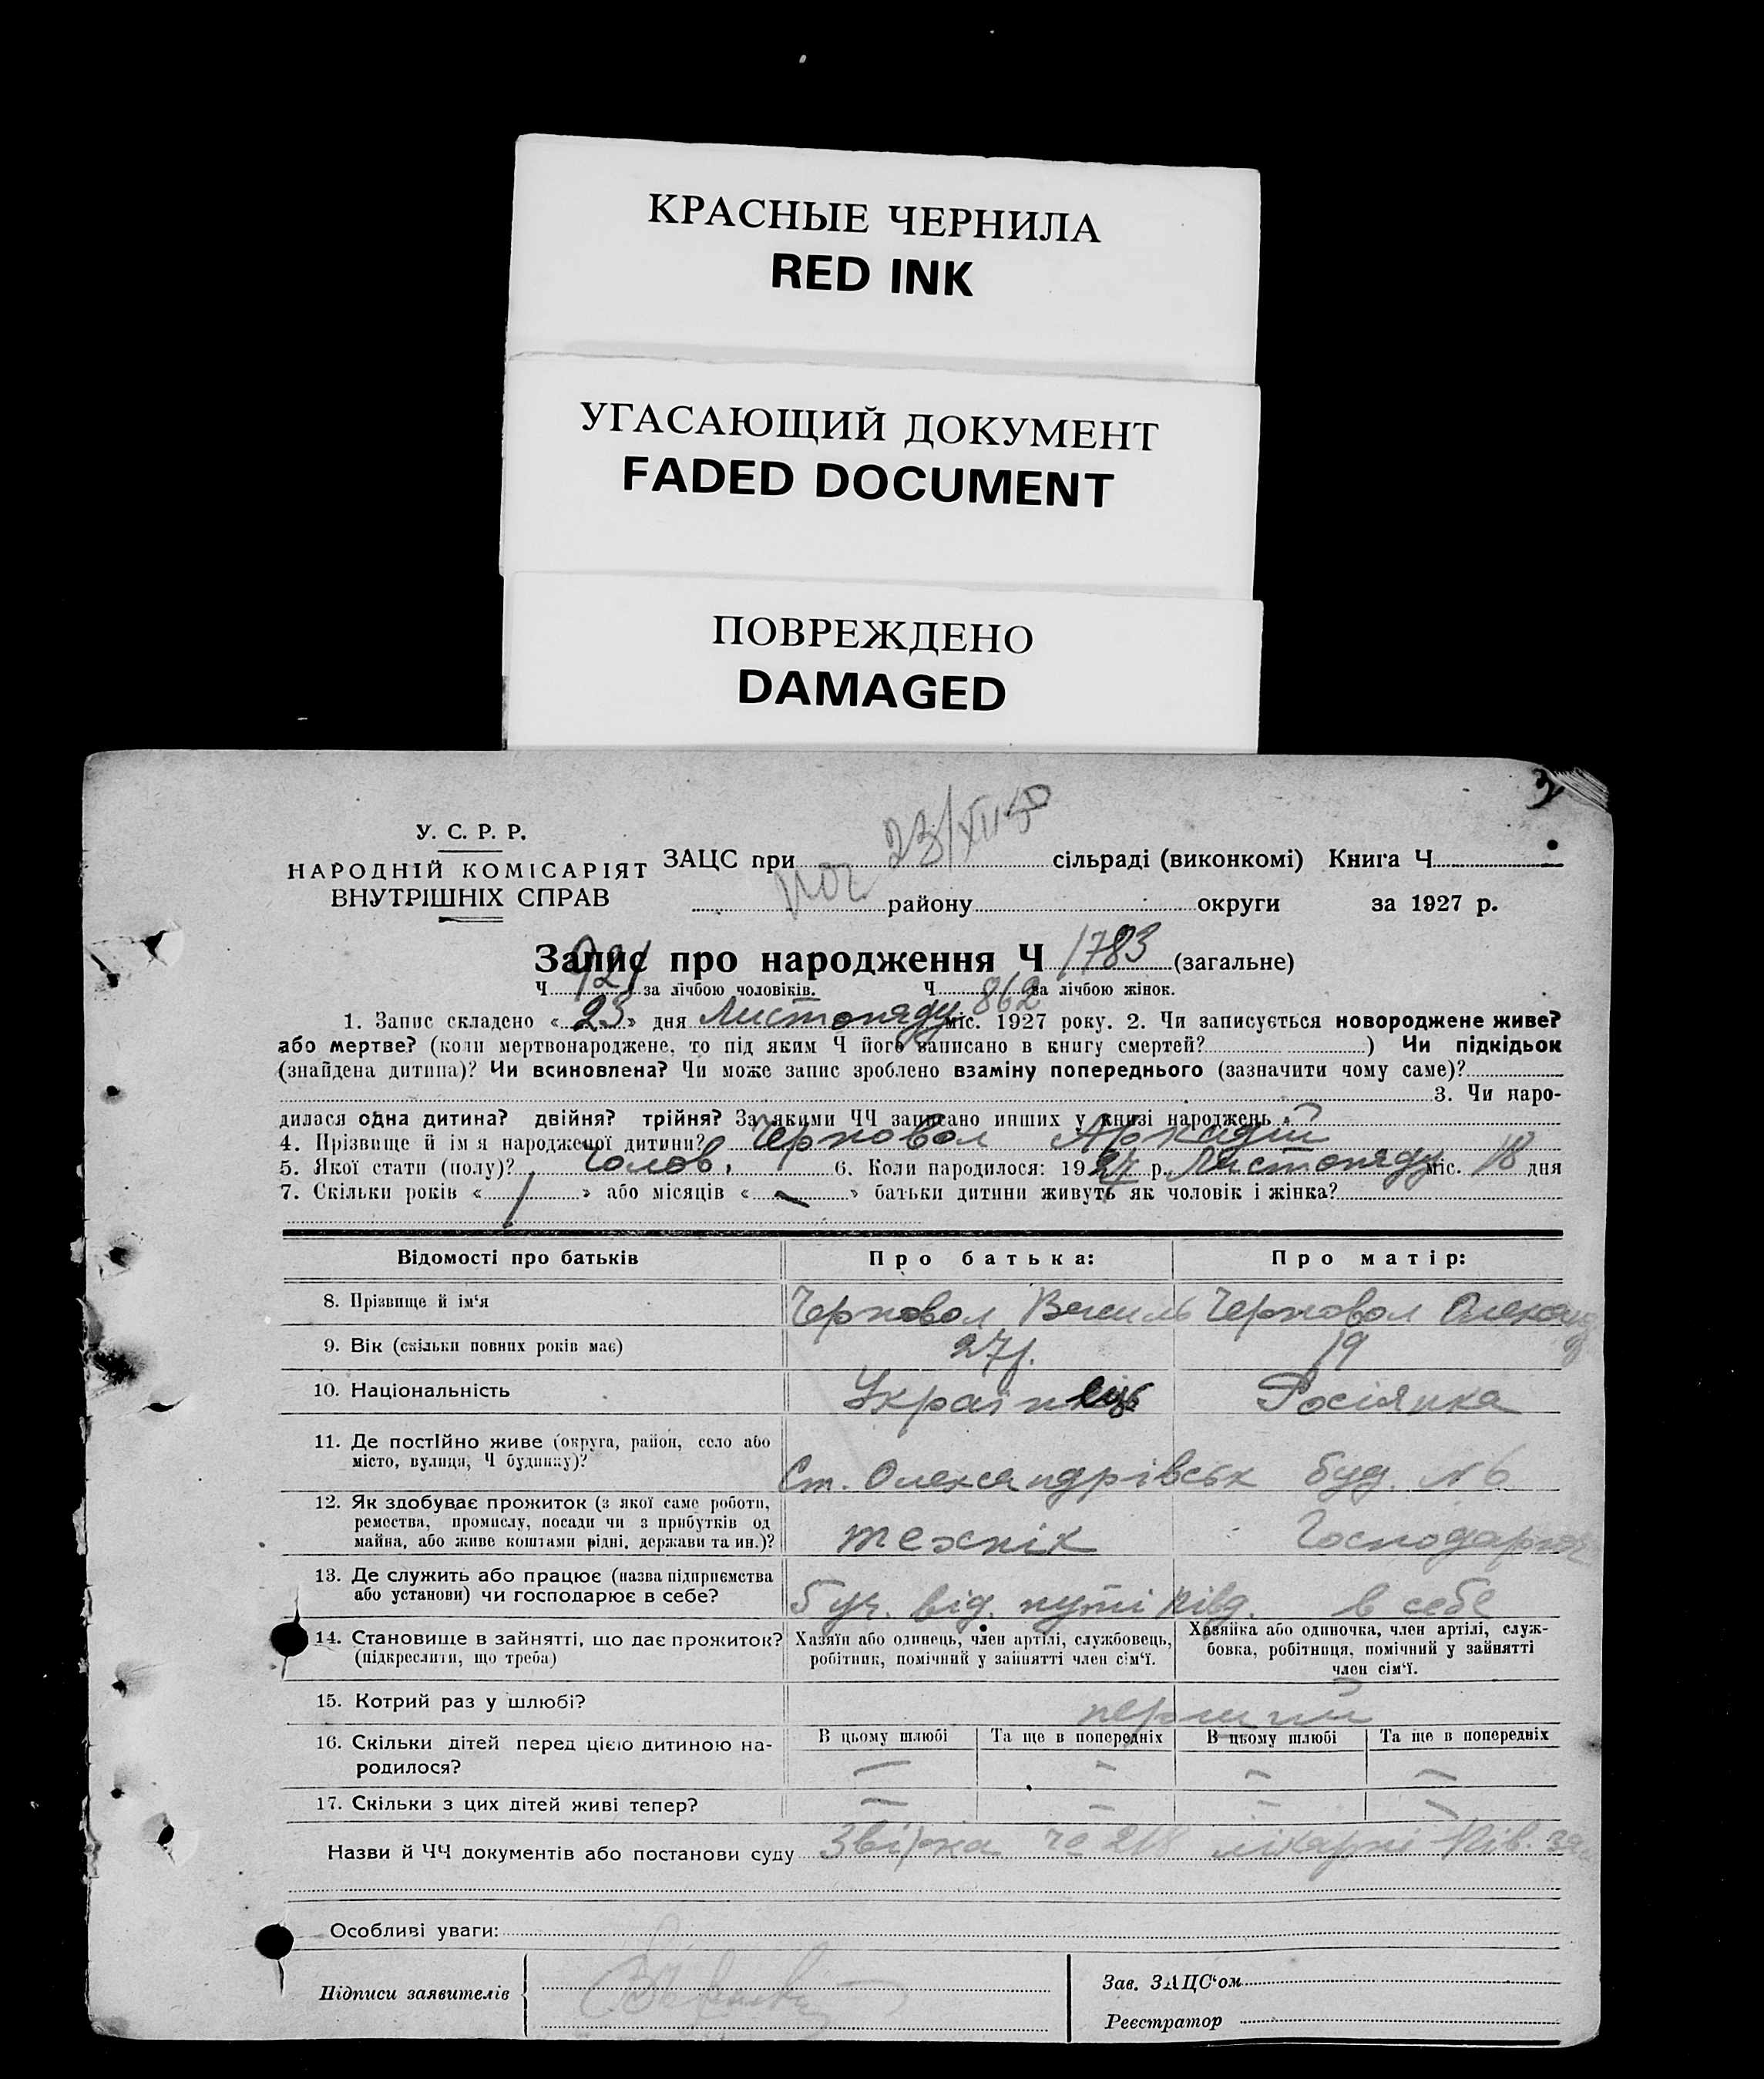 КРАСНЫЕ ЧЕРНИЛА
RED INK
УГАСАЮЩИЙ ДОКУМЕНТ
FADED DOCUMENT
ПОВРЕЖДЕНО
DAMAGED
У. С. Р. Р.
НАРОДНІЙ КОМІСАРІЯТ
ВНУТРІШНІХ СПРАВ
ЗАЦС при 23/XII сільраді (виконкомі) Книга Ч
району округи за 1927 р.
Запис про народження Ч 1783 (загальне)
Ч 921 за лічбою чоловіків. Ч 862 за лічбою жінок.
1. Запис складено « 23 » дня Листопаду міс. 1927 року. 2. Чи записується новороджене живе?
або мертве? (коли мертвонароджене, то під яким Ч його записано в книгу смертей? ) Чи підкідьок
(знайдена дитина)? Чи всиновлена? Чи може запис зроблено взаміну попереднього (зазначити чому саме)?
3. Чи наро-
дилася одна дитина? двійня? трійня? За якими ЧЧ записано инших у книзі народжень?
4. Прізвище й ім'я народженої дитини? Черновол Аркадій
5. Якої стати (полу)? Чолов. 6. Коли народилося: 1927 р. Листопаду міс. 18 дня
7. Скільки років « 1 » або місяців « — » батьки дитини живуть як чоловік і жінка?
Відомості про батьків Про батька: Про матір:
8. Прізвище й ім'я Черновол Василь Черновол Олександ
9. Вік (скільки повних років має) 27 р. 19
10. Національність Українець Росіянка
11. Де постійно живе (округа, район, село або
місто, вулиця, Ч будинку)? Ст. Олександрівськ буд. № 6
12. Як здобуває прожиток (з якої саме роботи,
ремества, промислу, посади чи з прибутків од
майна, або живе коштами рідні, держави та ин.)? технік Господарює
13. Де служить або працює (назва підприємства
або установи) чи господарює в себе? від. путі Півд. в себе
14. Становище в зайнятті, що дає прожиток?
(підкреслити, що треба)
Хазяїн або одинець, член артілі, службовець,
робітник, помічний у зайнятті член сім'ї.
Хазяйка або одиночка, член артілі, служ-
бовка, робітниця, помічний у зайнятті
член сім'ї.
15. Котрий раз у шлюбі? перший
16. Скільки дітей перед цією дитиною на-
родилося?
В цьому шлюбі Та ще в попередніх В цьому шлюбі Та ще в попередніх
— — — —
17. Скільки з цих дітей живі тепер? — — — —
Назви й ЧЧ документів або постанови суду 218 лікарні Пів.
Особливі уваги:
Підписи заявителів
Зав. ЗАЦС'ом
Реєстратор